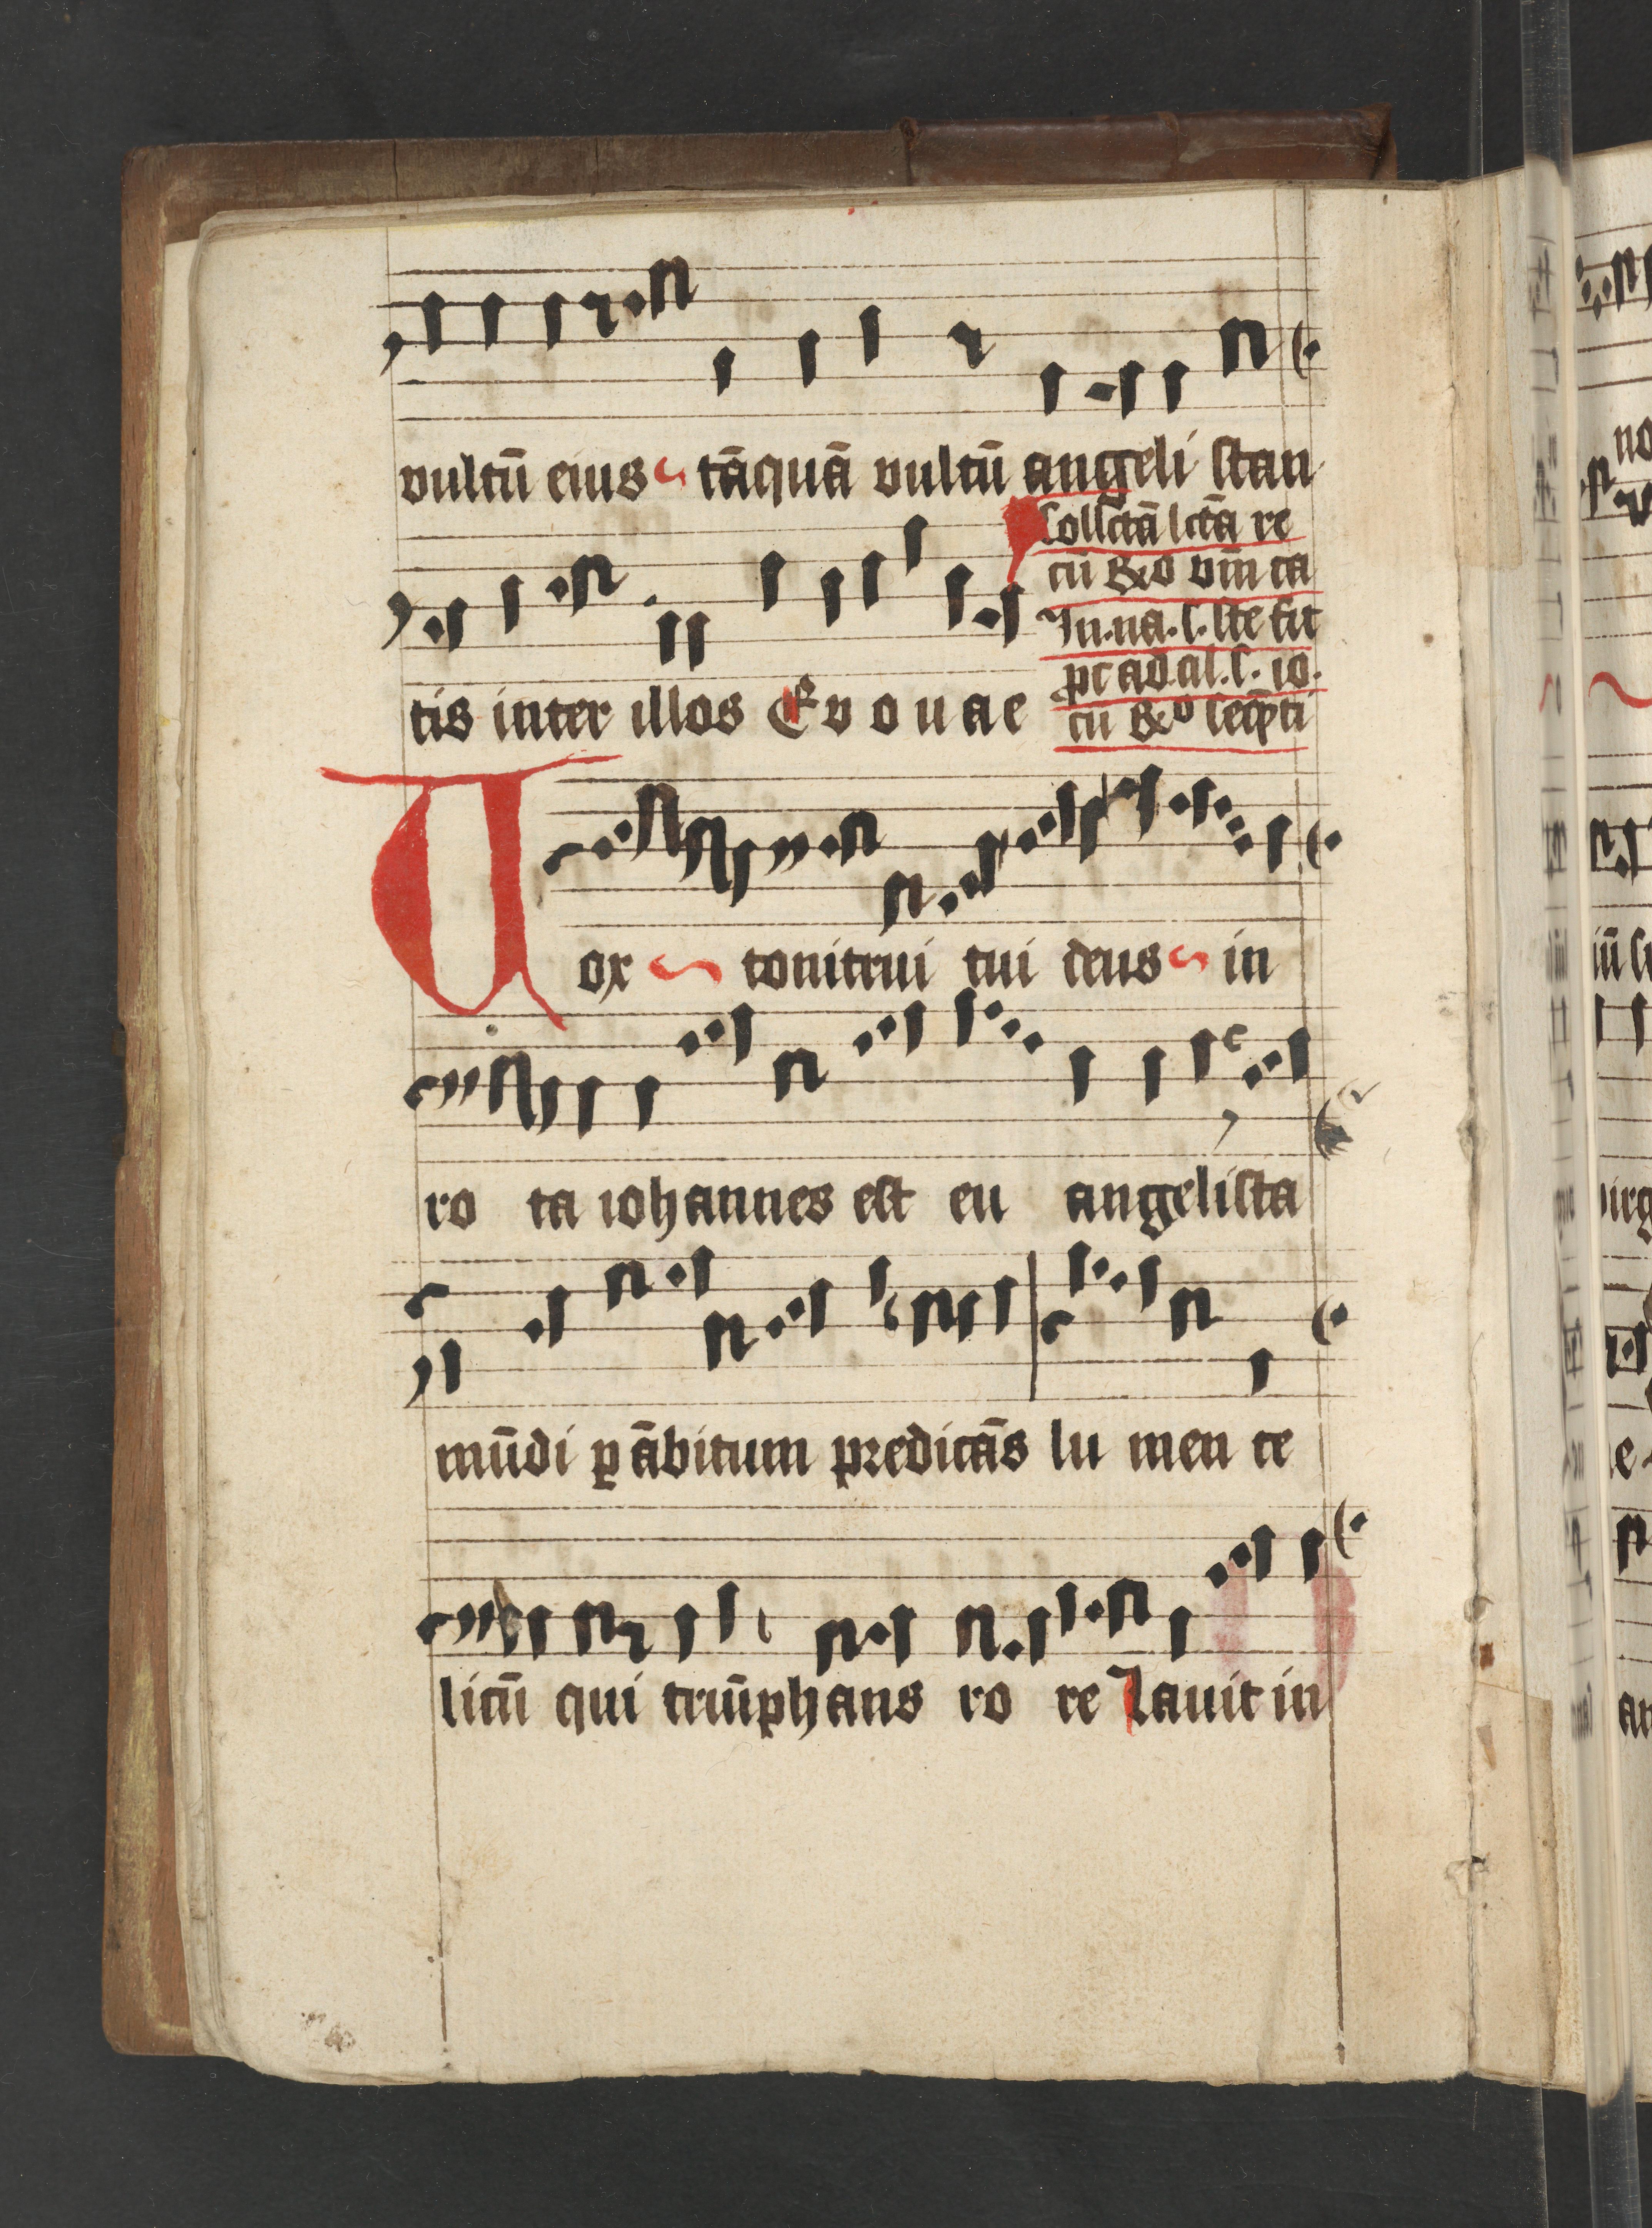 vultū eius tāquā vultū angeli stan
Coll̄ctā
re
cū
In.na.s.
ad.al.s.io.
cū
tis inter illos Evouae
Vox tonitrui tui deus in
ro ta iohannes est eu angelista
mūdi ꝑ ābitum predicās lu men ce
licū qui triūphans ro re lauit in